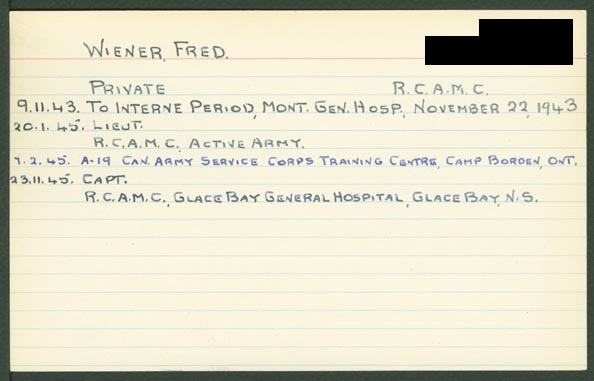 WIENER, FRED.
PRIVATE R.C.A.M.C.
9.11.43. TO INTERNE PERIOD, MONT. GEN. HOSP., NOVEMBER 22, 1943
20.1.45. LIEUT.
R.C.A.M.C. ACTIVE ARMY.
7.2.45. A-19 CAN. ARMY SERVICE CORPS TRAINING CENTRE, CAMP BORDEN, ONT.
23.11.45. CAPT.
R.C.A.M.C., GLACE BAY GENERAL HOSPITAL, GLACE BAY, N.S.